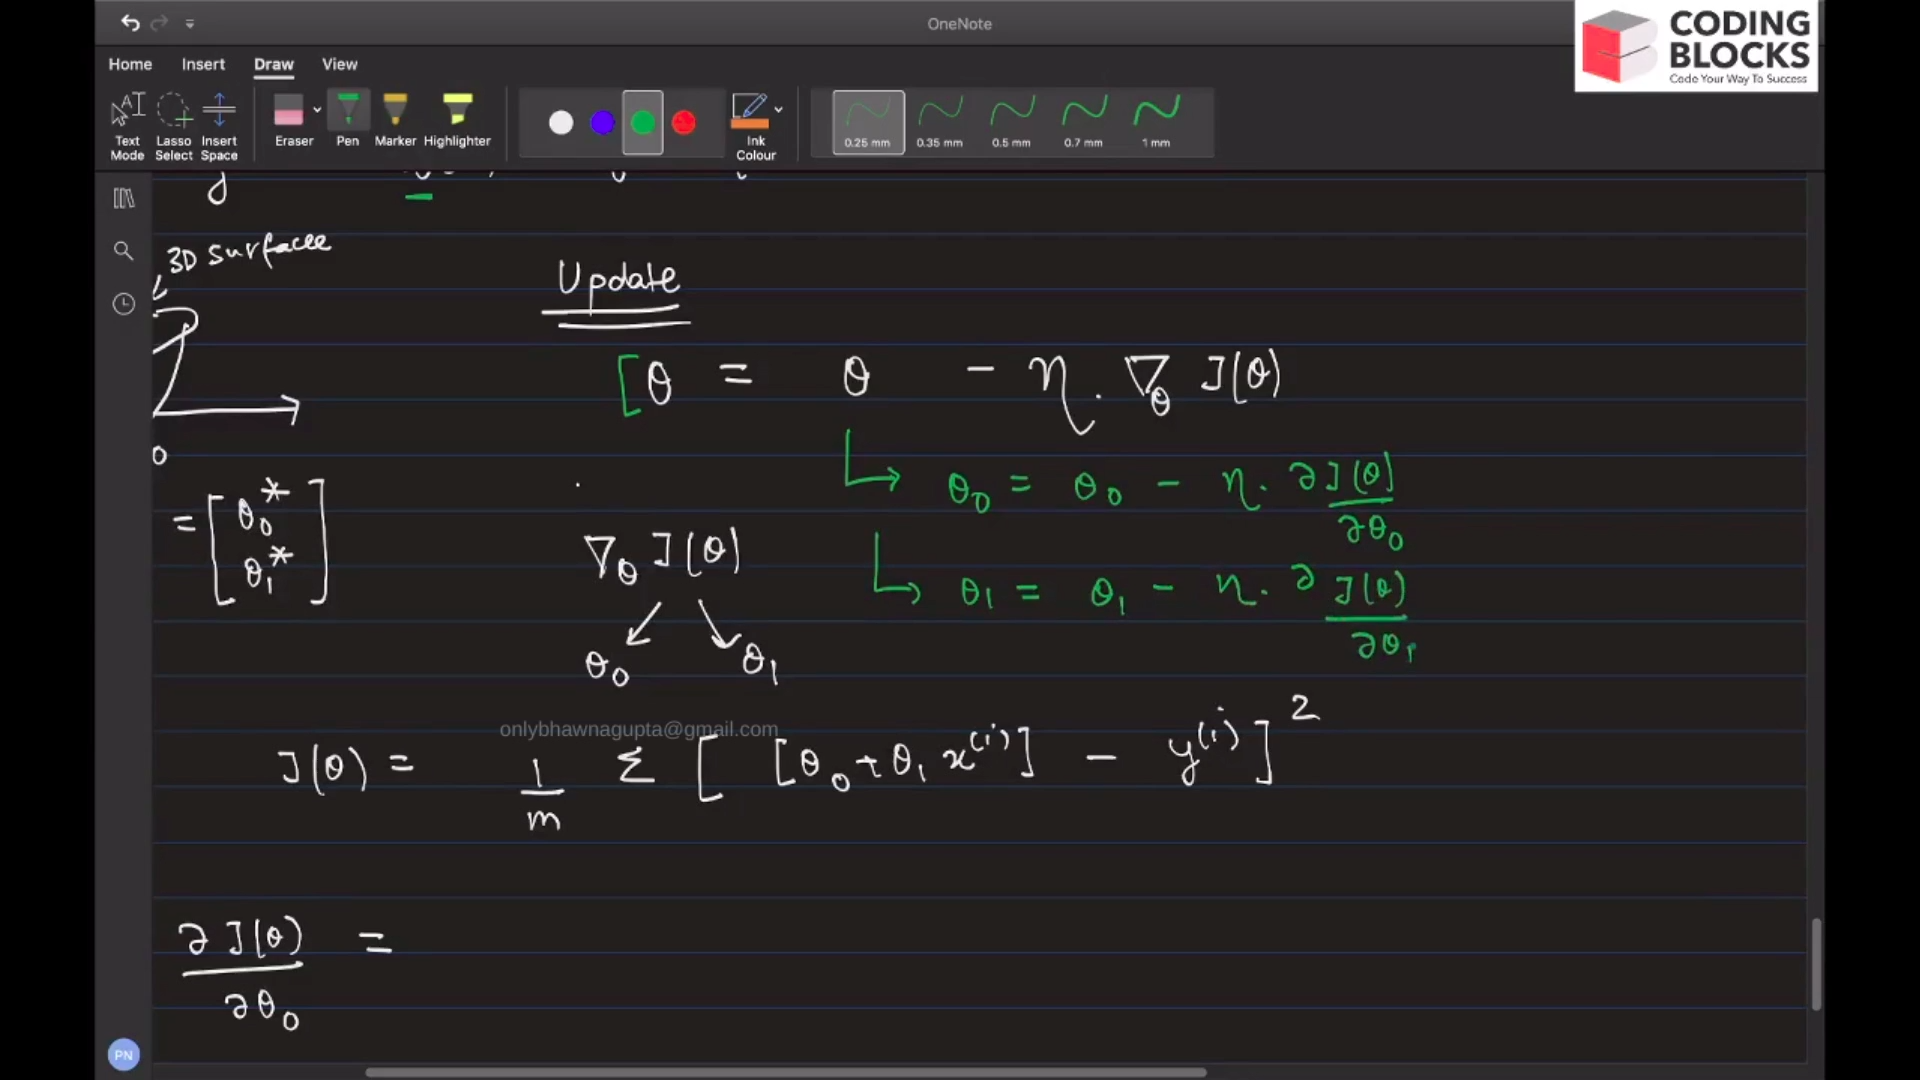 OneNote
CODING
BLOCKS
Code Your Way To Success
Home Insert Draw View
Text Mode Lasso Select Insert Space Eraser Pen Marker Highlighter Ink Colour 0.25 mm 0.35 mm 0.5 mm 0.7 mm 1 mm
3D surface
Update
[θ = θ - η. ∇θ J(θ)
0
θ₀ = θ₀ - η. ∂J(θ)/∂θ₀
= [θ₀* θ₁*]
∇θ J(θ)
θ₁ = θ₁ - η. ∂J(θ)/∂θ₁
θ₀ θ₁
onlybhawnagupta@gmail.com
J(θ) = 1/m Σ [ [θ₀+θ₁ x⁽ⁱ⁾] - y⁽ⁱ⁾ ]²
∂J(θ)/∂θ₀ =
PN